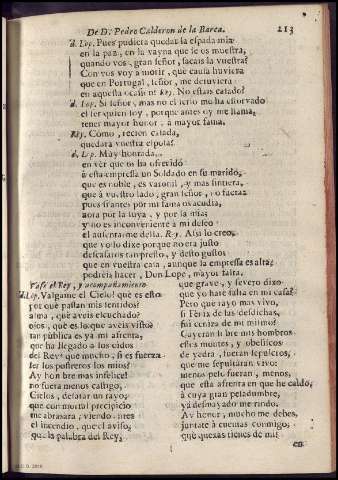 De D. Pedro Calderon de la Barca. 213
d. Lop. Pues pudiera quedar la espada mia
en la paz, en la vayna que le os muestra,
quando vos, gran señor, sacais la vuestra?
Con vos voy a morir, que causa huviera
que en Portugal, señor, me deruviera
en aquesta ocasiõ? Rey. No estais casado?
d. Lop. Si señor, mas no el serlo me ha estorvado
el ser quien soy, porque antes oy me llama,
tener mayor honor, à mayor fama.
Rey. Cómo, recien casada,
quedara vuestra esposa?
d. Lop. Muy honrada,
en ver que os ha ofrecido
à esta empressa un Soldado en su marido,
que es noble, es varonil, y mas sintiera,
que à vuestro lado, gran señor, no fuera:
pues si antes por mi fama os acudia,
aora por la suya, y por la mia;
y no es inconveniente à mi deseo
el ausentarme della. Rey. Assi lo creo,
que yo lo dixe porque no era justo
descasaros tan presto, y desto gusto:
que en vuestra casa, aunque la empressa es alta,
podreis hacer, Don Lope, mayor falta.
Vase el Rey, y acompañamiento
d. Lop. Valgame el Cielo! que es esto
por que passan mis sentidos?
alma, què aveis escuchado?
ojos, què es lo que aveis visto?
tan pública es ya mi afrenta,
que ha llegado à los oidos
del Rey? que mucho, si es fuerza
ser los postreros los mios?
Ay hombre mas infelice!
no fuera menos castigo,
Cielos, desatar un rayo,
que con mortal precipicio
me abrasara, viendo antes
el incendio, que el aviso,
que la palabra del Rey,
que grave, y severo dixo
que yo harè falta en mi casa?
Pero que rayo mas vivo,
si Fenix de las desdichas,
fui ceniza de mi mismo?
Cayeran sobre mis hombros
estos montes, y obeliscos
de yedra, fueran sepulcros,
que me sepultàran vivo:
menos peso fueran, menos,
que esta afrenta en que he caìdo,
à cuya gran pesadumbre,
ya desmayado me rindo.
Ay honor, mucho me debes,
juntate à cuentas conmigo;
què quexas tienes de mi?
en